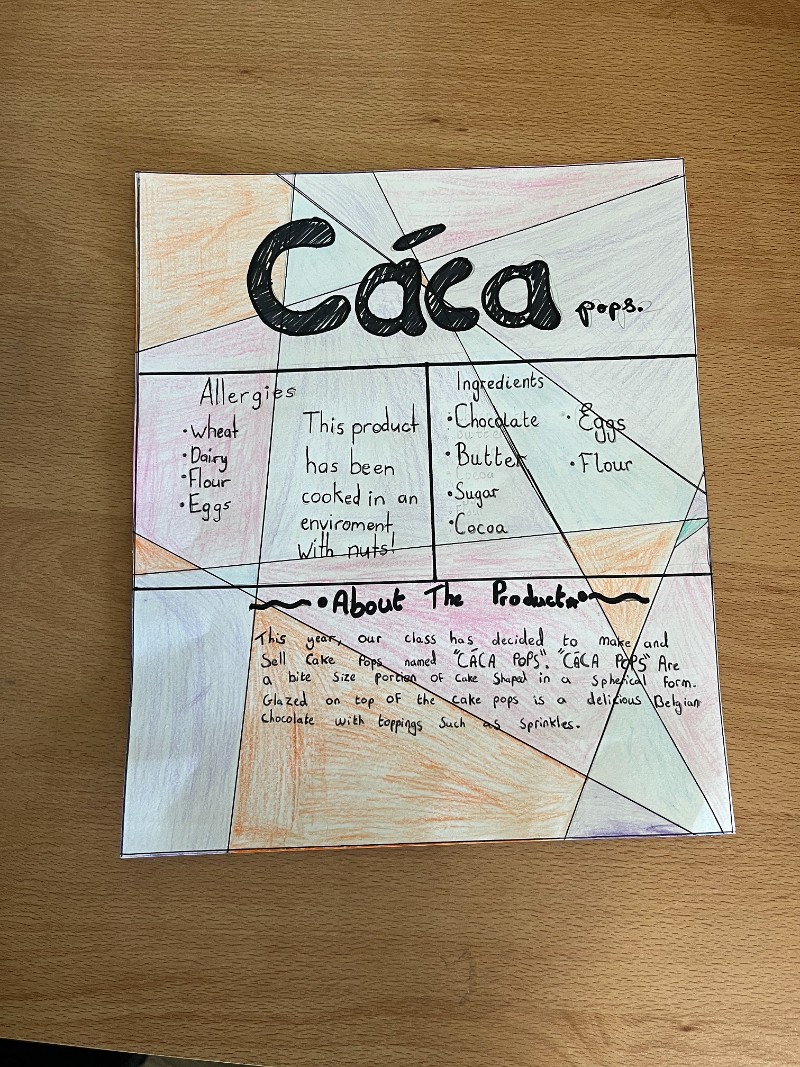 Cáca pops.
Allergies
• Wheat
• Dairy
• Flour
• Eggs
This product
has been
cooked in an
enviroment
with nuts!
Ingredients
• Chocolate
• Butter
• Sugar
• Cocoa
• Eggs
• Flour
About The Product
This year, our class has decided to make and
Sell Cake Pops named "CÁCA POPS". "CÁCA POPS" Are
a bite size portion of cake Shaped in a Spherical form.
Glazed on top of the cake pops is a delicious Belgian
Chocolate with toppings Such as Sprinkles.